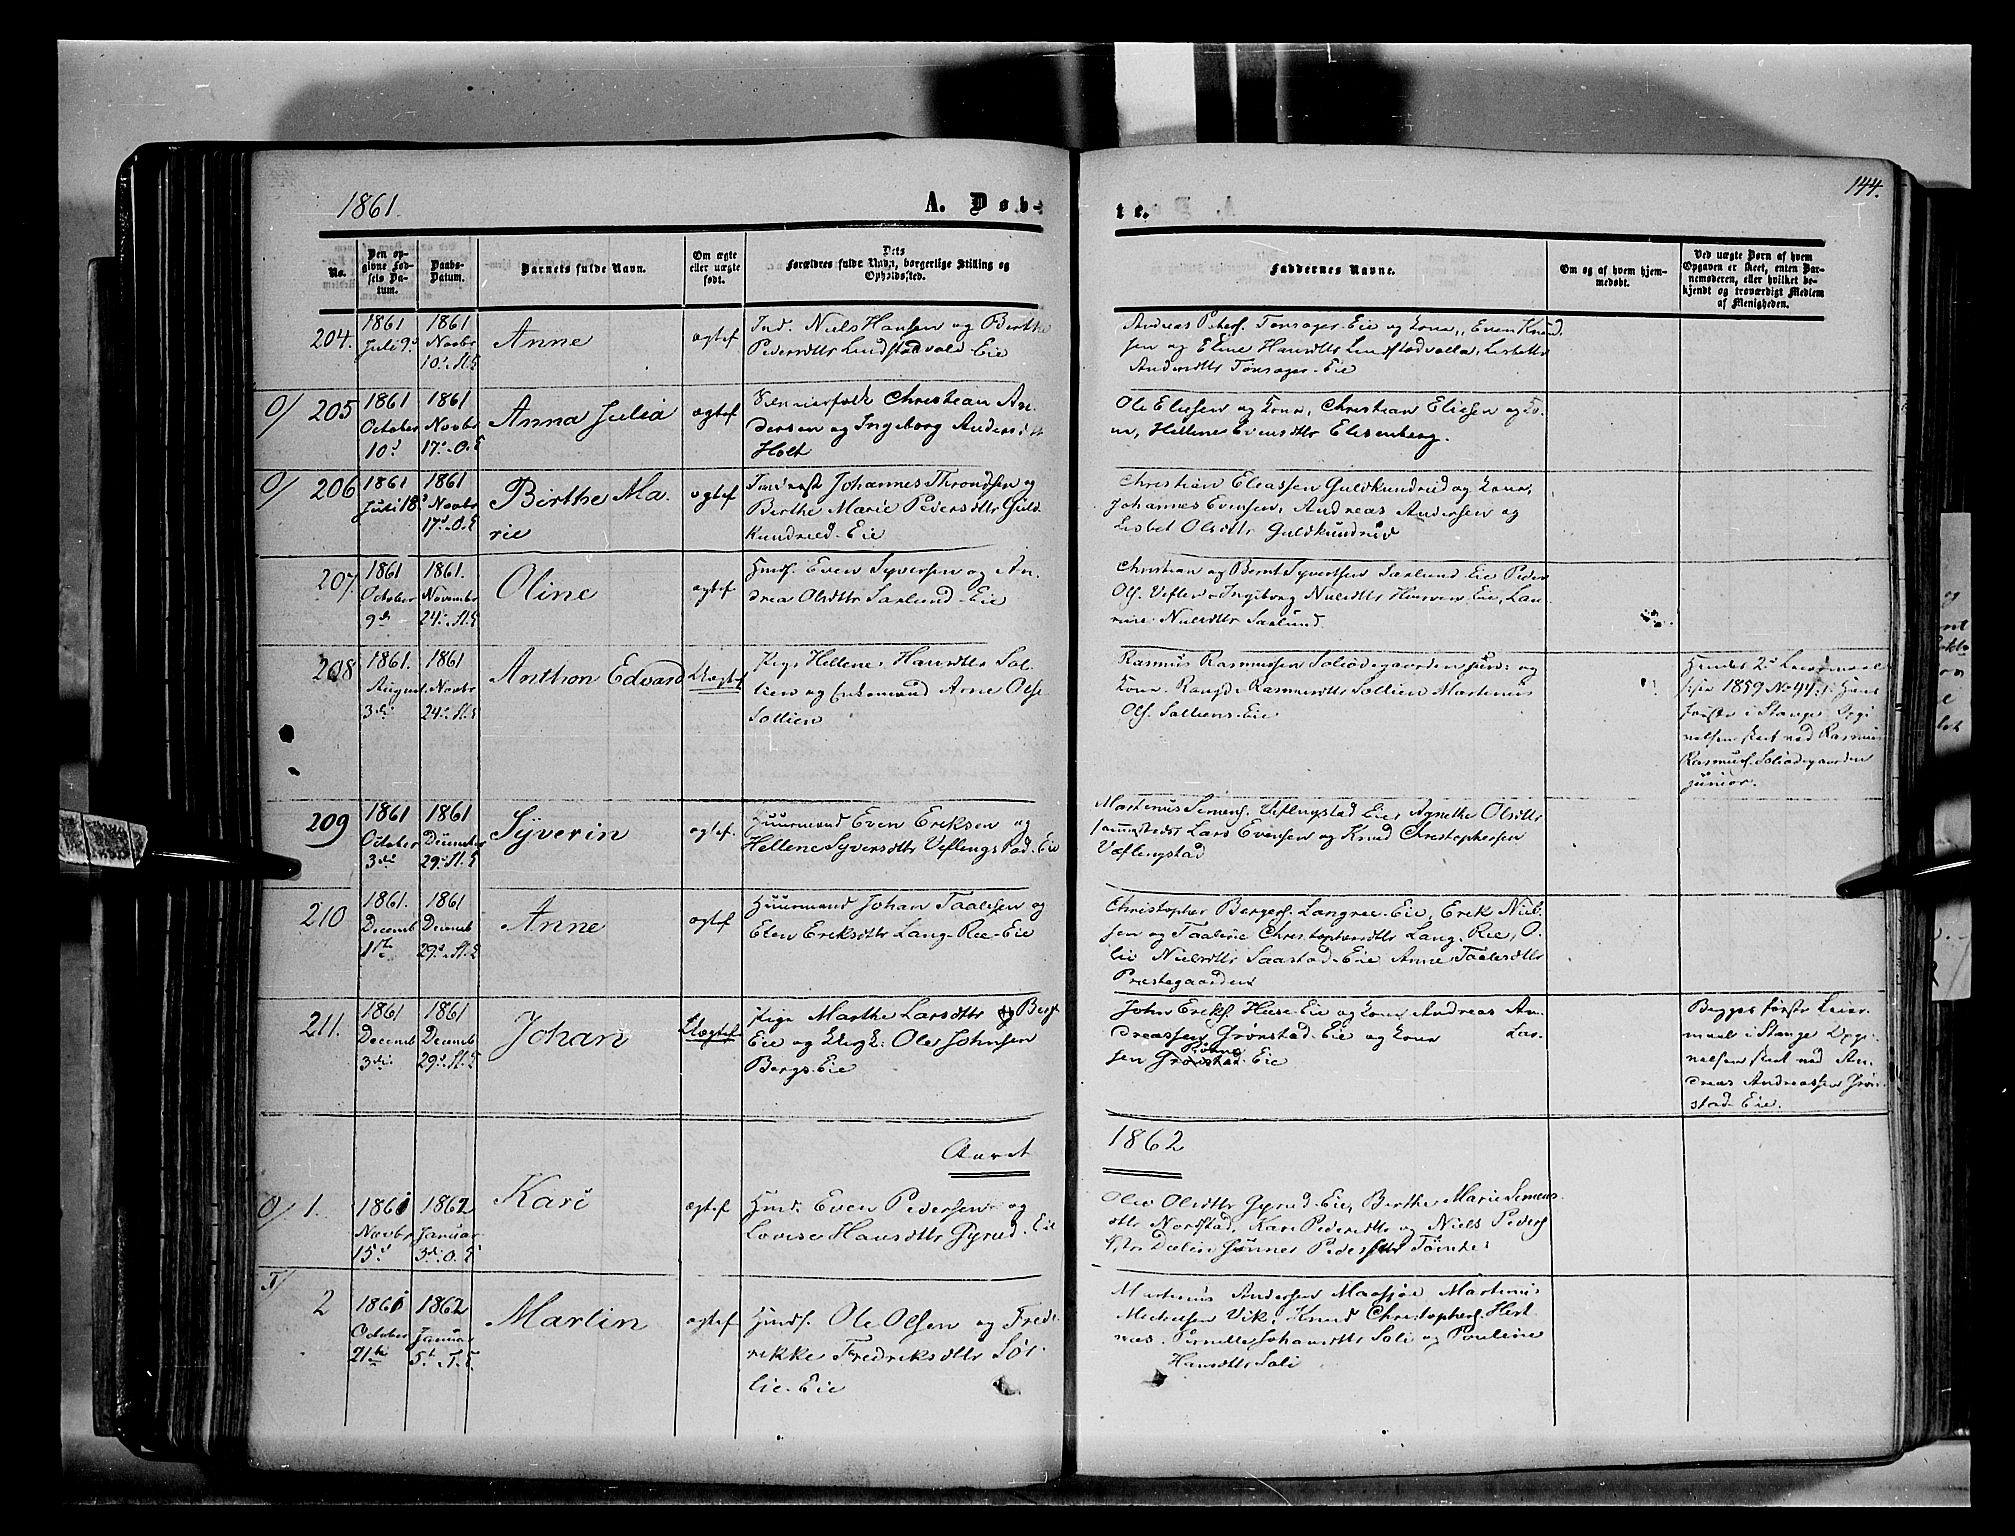 1861.
A. Døb-
te.
144.
No.
Den op-
givne Fød-
sels Da-
tum.
Daabs-
Datum.
Barnets fulde Navn.
Om ægte
eller uægte
født.
Dets
Forældres fulde Navn, borgerlige Stilling og
Opholdssted.
Faddernes Navne.
Om og af hvem hjem-
medøbt.
Ved uægte Børn af hvem
Opgaven er skeet, enten Bar-
nemoderen, eller hvilket be-
kjendt og troværdigt Medlem
af Menigheden.
204.
1861
Juli 9d
1861
Novbr
10d. St. K
Anne
ægtef
Ind. Niels Hansen og Berthe
Pedersdtr Lindstadvold Eie
Andreas Peters. Tønsager-Eie og Kone, Even Knud-
sen og Eline Hansdtr Lindstadvolla, Lisbeth
Andersdtr Tønsager-Eie
O/ 205
1861
October
10d
1861
Novbr
17d. O. K
Anna Julia
ægtef
Christian An-
dersen og Ingeborg Andersdtr
Holt
Ole Eliesen og Kone, Christian Eliesen og Ko-
ne, Hellene Evensdtr Elisenberg.
O/ 206
1861
Juli 18d
1861
Novbr
17d. O. K
Birthe Ma-
rie
ægtef
Inderst Johannes Throndsen og
Berthe Marie Pedersdtr Guld-
kundrud-Eie
Christian Eleassen Guldkundrud og Kone,
Johannes Evensen, Andreas Andersen og
Lisbet Olsdtr Guldkundrud
207.
1861
October
9de
1861.
November
24d. St. K
Oline
ægtef
Huusf. Even Syversen og An-
drea Olsdtr Saxlund-Eie
Christian og Bernt Syvertsen Saxlund-Eie Peder
Ols. Ingeborg Nielsdtr Eie,
Nielsdtr Saxlund.
208
1861.
August
3de
1861
Novbr
24d. St. K
Anthon Edvard
Uægtef
Pige Hellene Hansdtr Sol-
lien og Enkemand Arne Ols.
Sollien
Rasmus Rasmussen Soliødegaarden jun: og
Kone Rangdi Rasmusdtr Sollien Martinus
Ols. Solliens-Eie
Hendes 2d Leiermaal
1859 No 44. Hans
første i Stange Opgi-
velsen skeet ved Rasmus
Rasmus. Soliødegaarden
junior.
209
1861
October
3de
1861
December
29d. St. K
Syverin
ægtef.
Huusmand Even Eriksen og
Hellene Syversdtr Veflingstad-Eie
Martinus Simens. Veflingstad Eie, Agnethe Olsdtr
sammesteds Lars Evensen og Knud Christophersen
Veflingstad
210
1861.
Decemb
1te
1861
Decemb
29d. St. K
Anne
ægtef
Huusmand Johan Taalesen og
Elen Eriksdtr Lang-Ree-Eie
Christopher Bergers. Langree-Eie, Erik Niel-
sen og Taaline Christophersdtr Lang-Ree, O-
lie Nielsdtr Saastad-Eie Anne Taalesdtr
Præstegaarden
211.
1861
Decemb
3de
1861
Decemb
29d. St. K
Johan
Uægtef
Pige Marthe Larsdtr Berg-
Eie og Ungk: Ole Johnsen
Bergs-Eie
John Eriks. Huse-Eie og Kone Andreas An-
dreassen Grønstad-Eie og Kone Lar-
sen Grønstad-Eie
Begges første Leier-
maal i Stange Opgi-
velsen skeet ved An-
dreas Andreassen Grøn-
stad-Eie.
Aaret
1862
O/ 1.
1861
Novbr
15d
1862
Januar
3d. O. K
Kari
ægtef
Huusm. Even Pedersen og
Lovise Hansdtr Gyrud-Eie
Olea Olsdtr Gyrud-Eie, Berthe Marie Simens-
dtr Nordstad, Kari Pedersdtr og Niels Peders.
Gunner Pedersdtr Tømte
T/ 2
1861
October
21de
1862
Januar
5d. T. K
Martin
ægtef
Huusf. Ole Olsen og Fred-
rikke Fredriksdtr Søl-
lie-Eie
Martinus Andersen Maasjøe Martinus
Mechelsen Vik, Knud Christophers. Hest-
næs Pernelle Johansdtr Soli og Pauline
Hansdtr Soli